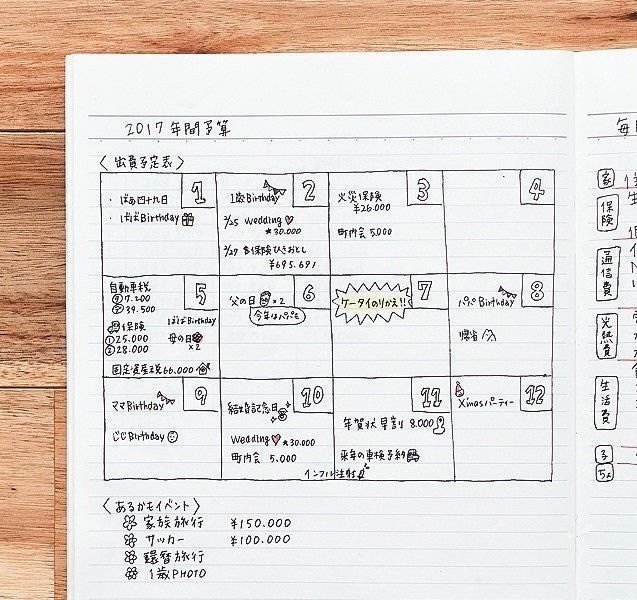 2017年間予算
〈出費予定表〉
1
・ばぁ四十九日
・ばぁばBirthday
2
1歳Birthday
2/25 Wedding
¥30.000
2/27 保険ひきおとし
¥695.691
3
火災保険
¥26.000
町内会 5.000
4
5
自動車税
7.200
39.500
保険
①25.000
②28.000
ばぁばBirthday
母の日
×2
固定資産税66.000
6
父の日 ×2
今年はパパも
7
ケータイのりかえ!!
8
パパBirthday
帰省
9
ママBirthday
じじBirthday
10
結婚記念日
Wedding ¥30.000
町内会 5.000
11
年賀状早割 8.000
来年の車検予約
インフル注射
12
X'masパーティー
〈あるかもイベント〉
家族旅行 ¥150.000
サッカー ¥100.000
還暦旅行
1歳PHOTO
毎
家
保険
通信費
光熱費
生活費
子
ちょ